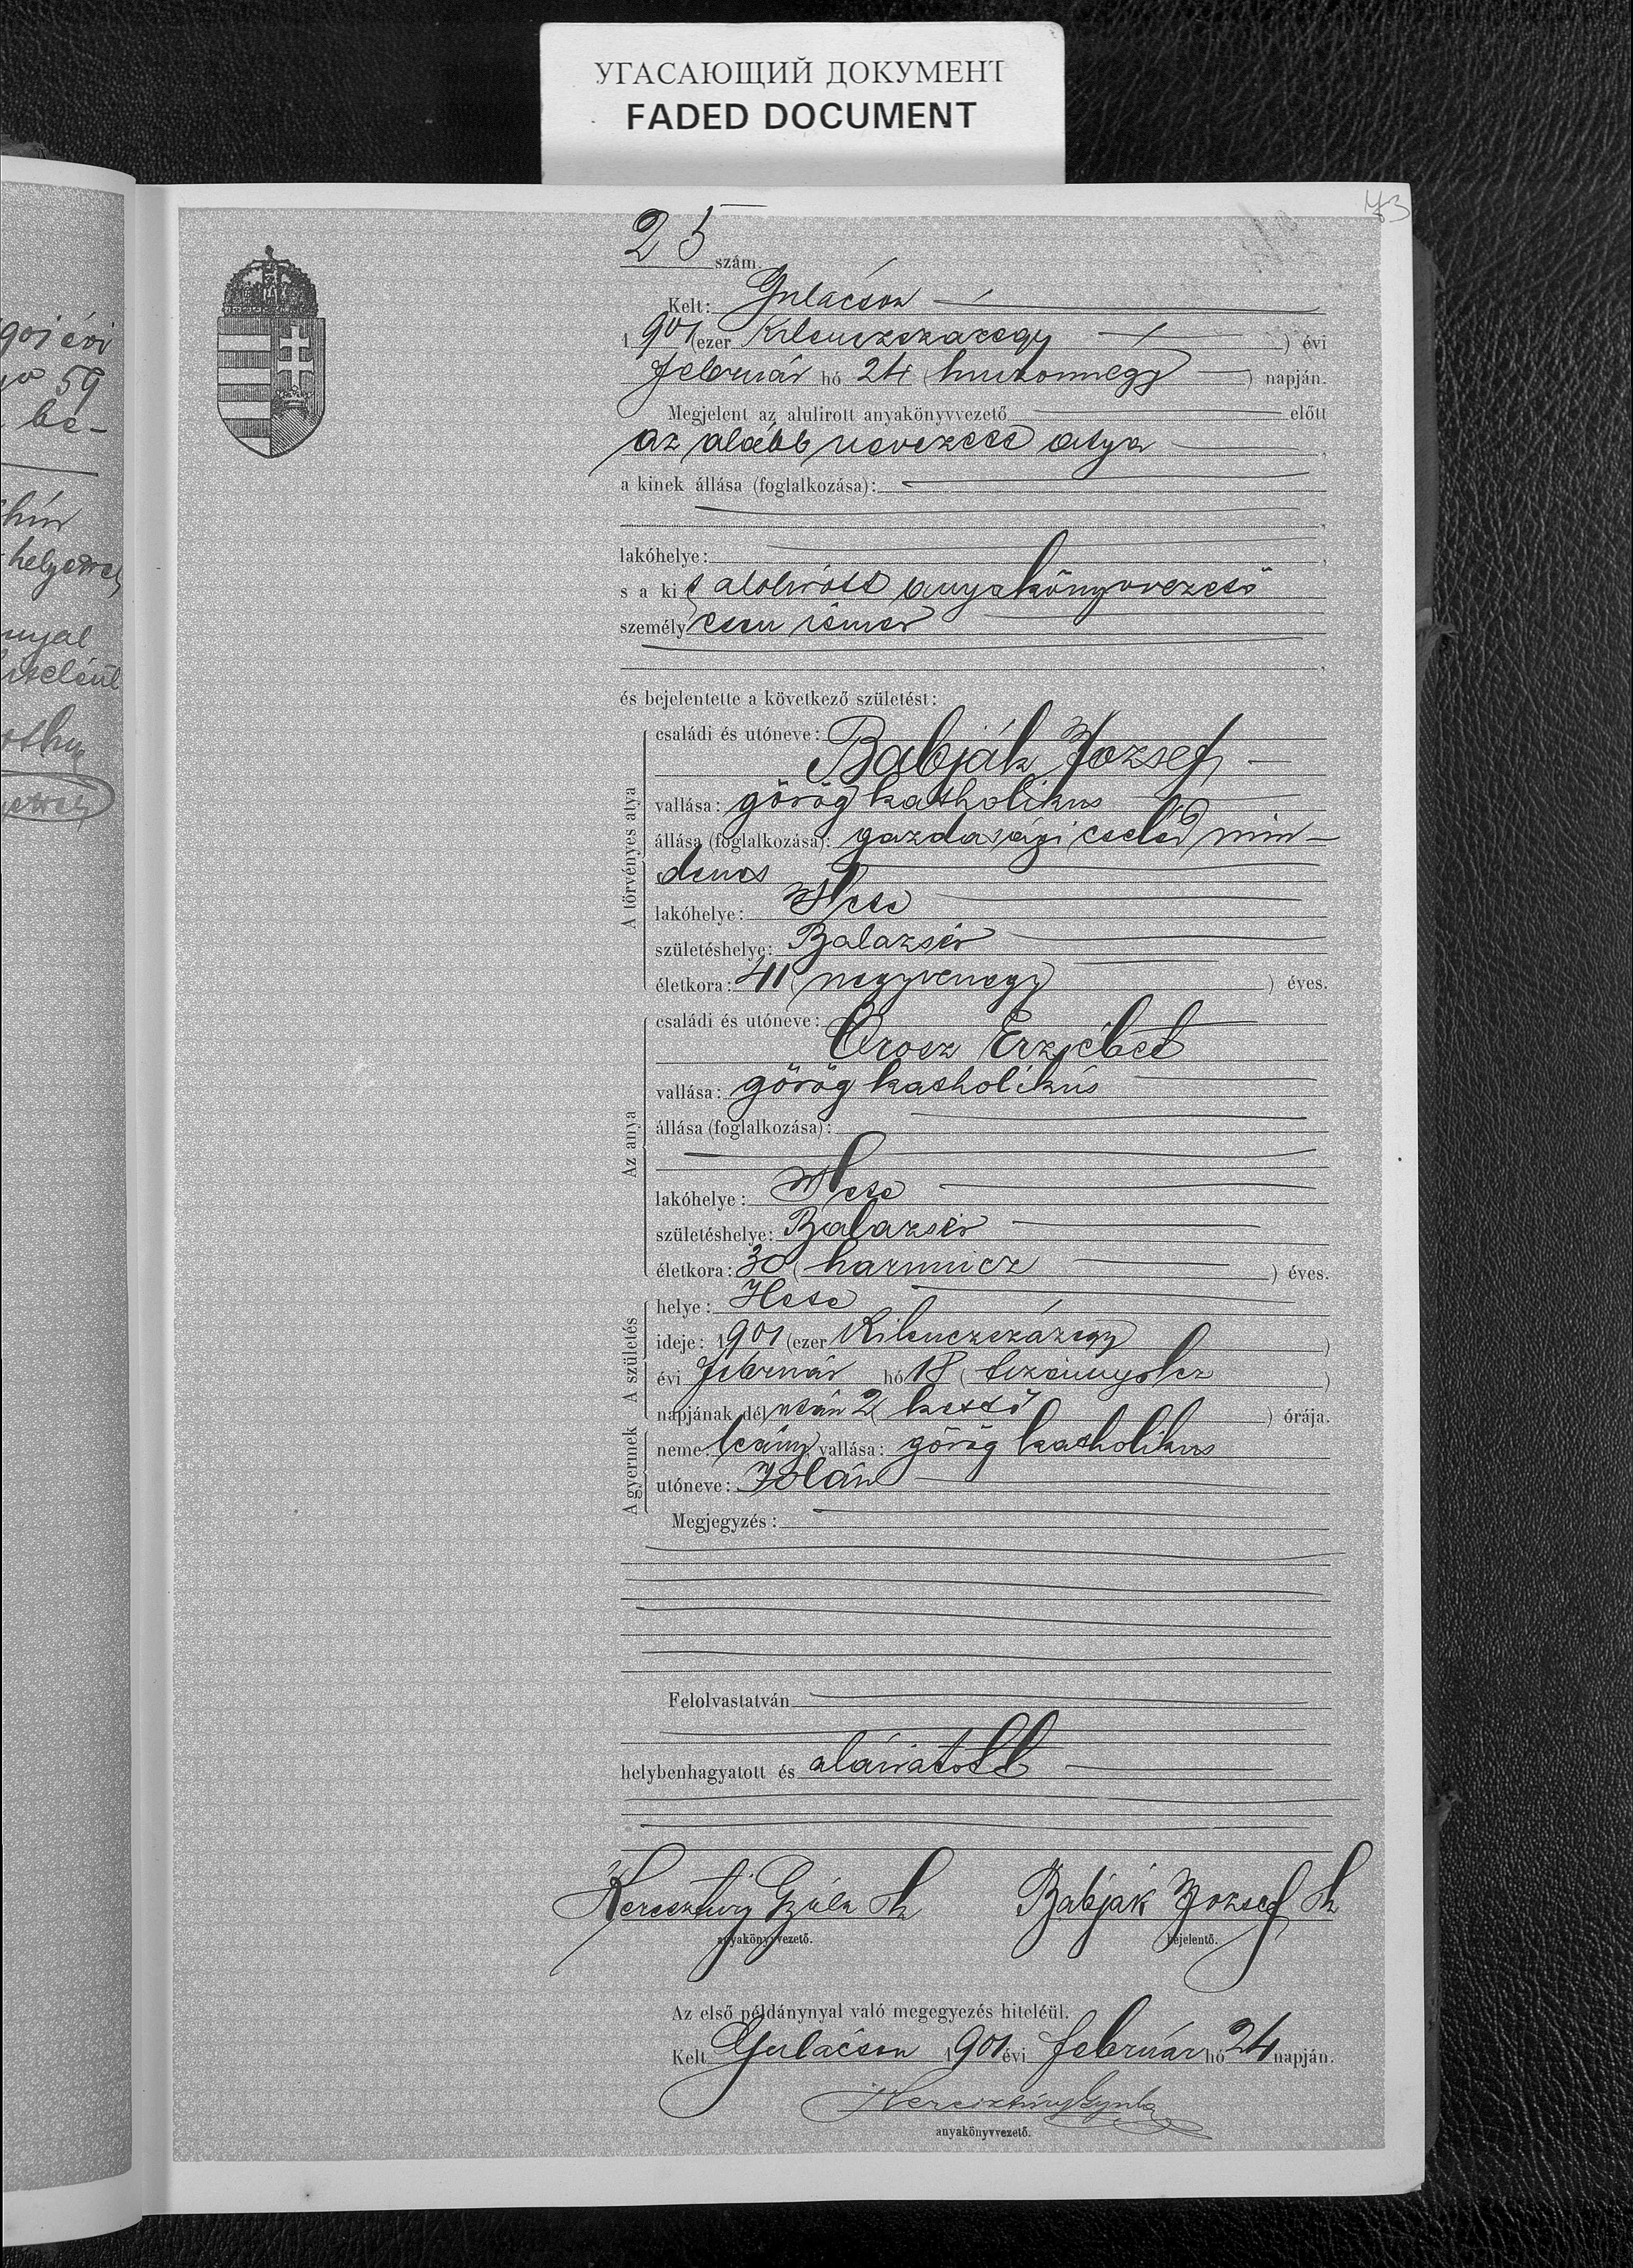 УГАСАЮЩИЙ ДОКУМЕНТ
FADED DOCUMENT
73
25 szám.
Kelt: Gulácson
1901 (ezer kilenczszázegy) évi
február hó 24 (huszonnegy) napján.
Megjelent az alulirott anyakönyvvezető előtt
az alább nevezett atya
a kinek állása (foglalkozása):
lakóhelye:
s a ki t alolirott anyakönyvvezető
személyesen ismer
és bejelentette a következő születést:
A törvényes atya
családi és utóneve:
Babják József
vallása: görög katholikus
állása (foglalkozása): gazdasági cseléd min-
denes
lakóhelye: Hete
születéshelye: Balazsér
életkora: 41 (negyvenegy) éves.
Az anya
családi és utóneve:
Orosz Erzsébet
vallása: görög katholikus
állása (foglalkozása):
lakóhelye: Hete
születéshelye: Balazsér
életkora: 30 (harmincz) éves.
A születés
helye: Hete
ideje: 1901 (ezer kilenczszázegy)
évi február hó 18 (tizennyolcz)
napjának délután 2 (kettő) órája.
A gyermek
neme: leány vallása: görög katholikus
utóneve: Jolán
Megjegyzés:
Felolvastatván
helybenhagyatott és aláiratott
Gyula sk Babják József sk
anyakönyvvezető. bejelentő.
Az első példánynyal való megegyezés hiteléül.
Kelt Gulácson 1901 évi február hó 24 napján.
Gyula
anyakönyvvezető.
901 évi
59
be-
helyettes
nyal